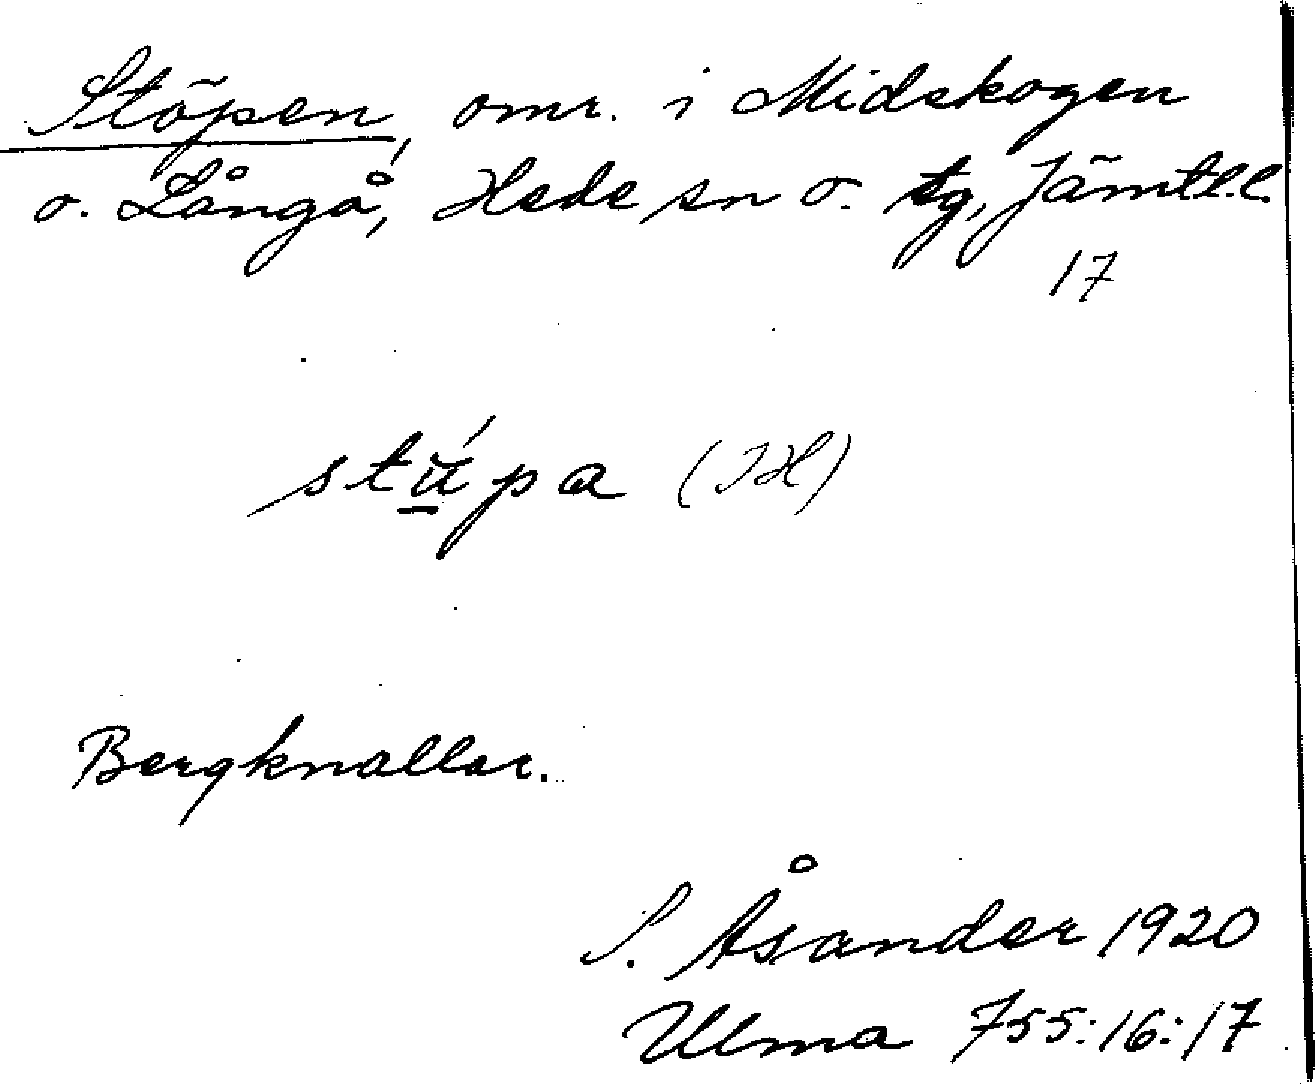 Stöpen, omr. i Midskogen
o. Långå, Hede sn o. tg, Jämtl.l.
17
stǘpa (JH)
Bergknallar.
S. Åsander 1920
Ulma 755:16:17